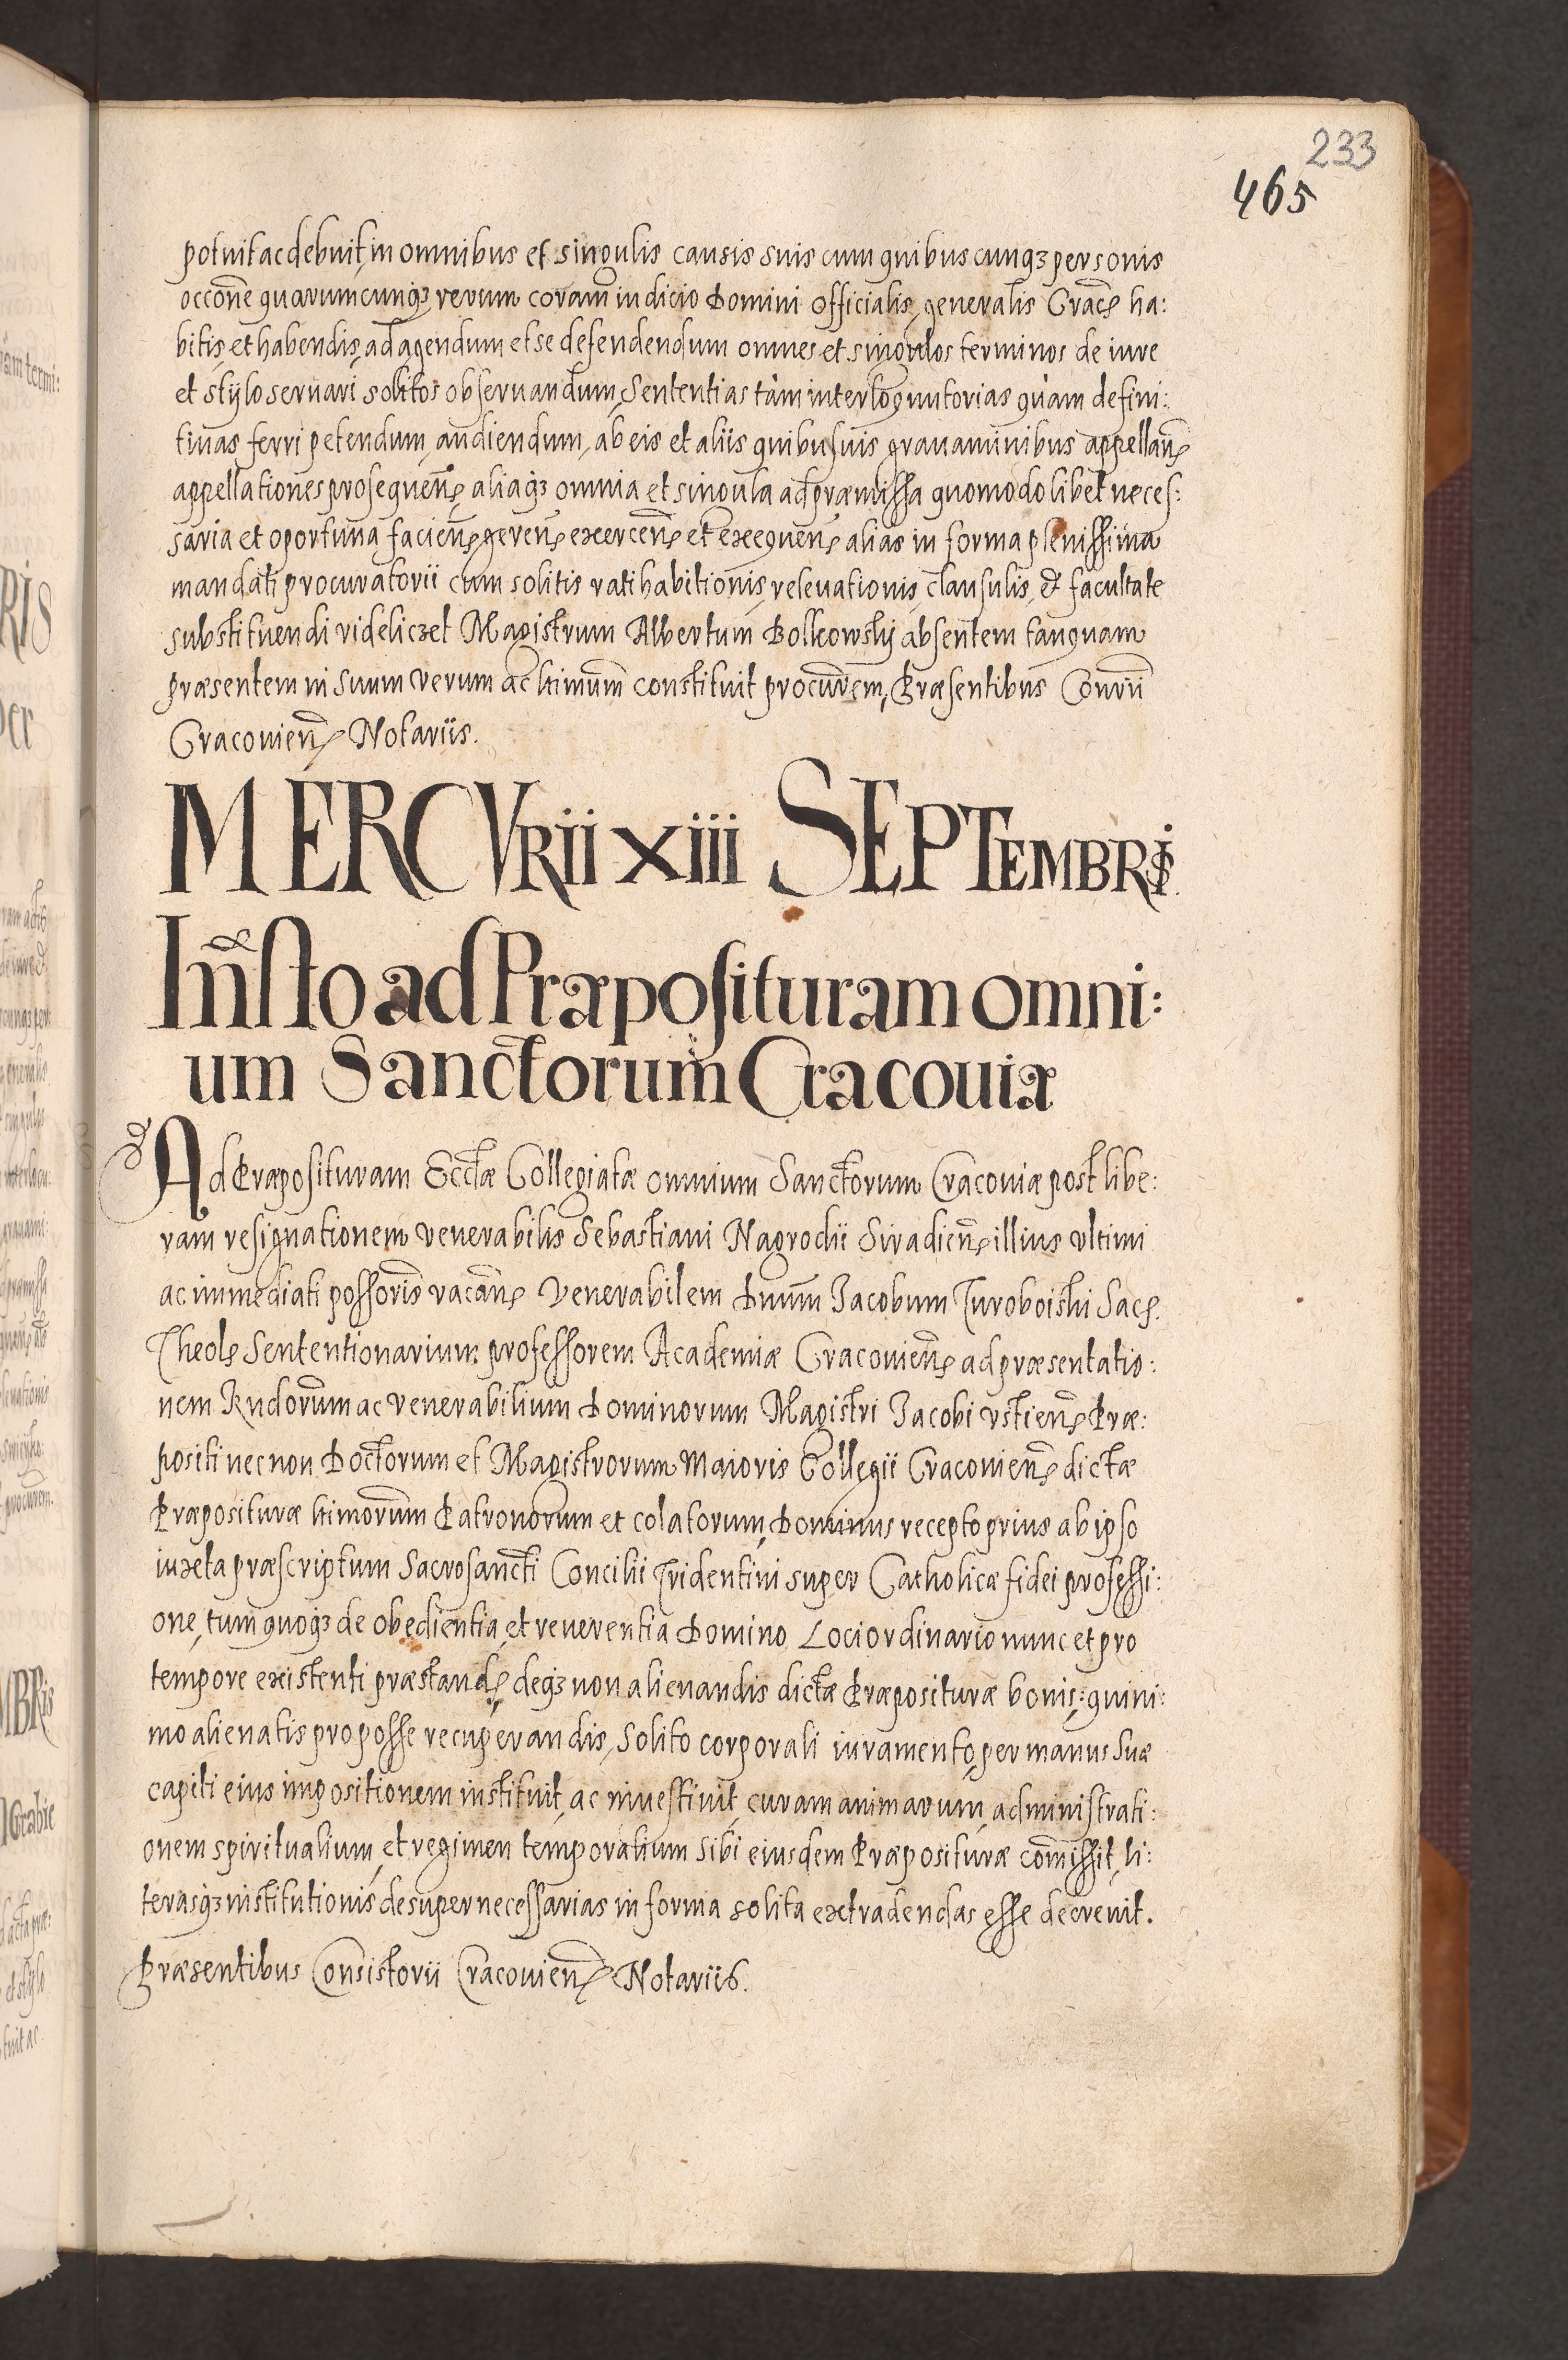 233
465
potuit ac debuit, in omnibus et singulis causis suis cum quibuscunqꝫ personis
occõne quarumcunqꝫ rerum coram iudicio Domini Officialis, generalis Cracę ha:
bitis, et habendis, ad agendum et se defendendum omnes et singulos terminos de iure
et stylo seruari solitos obseruandum, Sententias tàm interloqutorias quàm defini:
tiuas ferri petendum, audiendum, ab eis et aliis quibusuis grauaminibus appellañ
appellationes prosequeñ, aliaqꝫ omnia et singula ad præmissa quomodolibet neces:
saria et oportuna facieñ, gereñ, exerceñ, et exequeñ, alias in forma plenissima
mandati procuratorii cum solitis ratihabitionis, releuationis, clausulis, et facultate
substituendi videliczet Magistrum Albertum Bolkowskÿ absentem tanquam
præsentem in Suum verum ac ltimum constituit procurẽm, Præsentibus Conrii
Cracouieñ Notariis.
MERCVRii xiii SEPTEMBRis
Insto ad Præposituram omni:
um Sanctorum Cracouiæ
Ad Præposituram Ecctæ Collegiatæ omnium Sanctorum Cracouiæ post libe:
ram resignationem venerabilis Sebastiani Nagrodii Siradieñ illius vltimi
ac immediati possoris vacañ Venerabilem Dnum Jacobum Turoboiski Sacę.
Theolę Sententionarium professorem Academiæ Cracouieñ ad præsentatio:
nem Rndorum ac venerabilium Dominorum Magistri Jacobi vstieñ Præ:
positi necnon Doctorum et Magistrorum Maioris Collegii Cracouieñ dictæ
Præposituræ ltimorum Patronorum et colatorum, Dominus recepto prius ab ipso
iuxta præscriptum Sacrosancti Concilii Tridentini super Catholicæ fidei professi:
one, tum quoqꝫ de obedientia, et reuerentia Domino Loci ordinario nunc et pro
tempore existenti præstandę, deqꝫ non alienandis dictæ Præposituræ bonis: quini:
mo alienatis pro posse recuperandis, Solito corporali iuramento, per manus Suæ
capiti eius impositionem instituit, ac inuestiuit, curam animarum, administrati:
onem spiritualium, et regimen temporalium Sibi eiusdem Præposituræ comissit, li:
terasqꝫ institutionis desuper necessarias in forma solita extradendas esse decreuit.
Præsentibus Consistorii Cracouieñ Notariis.